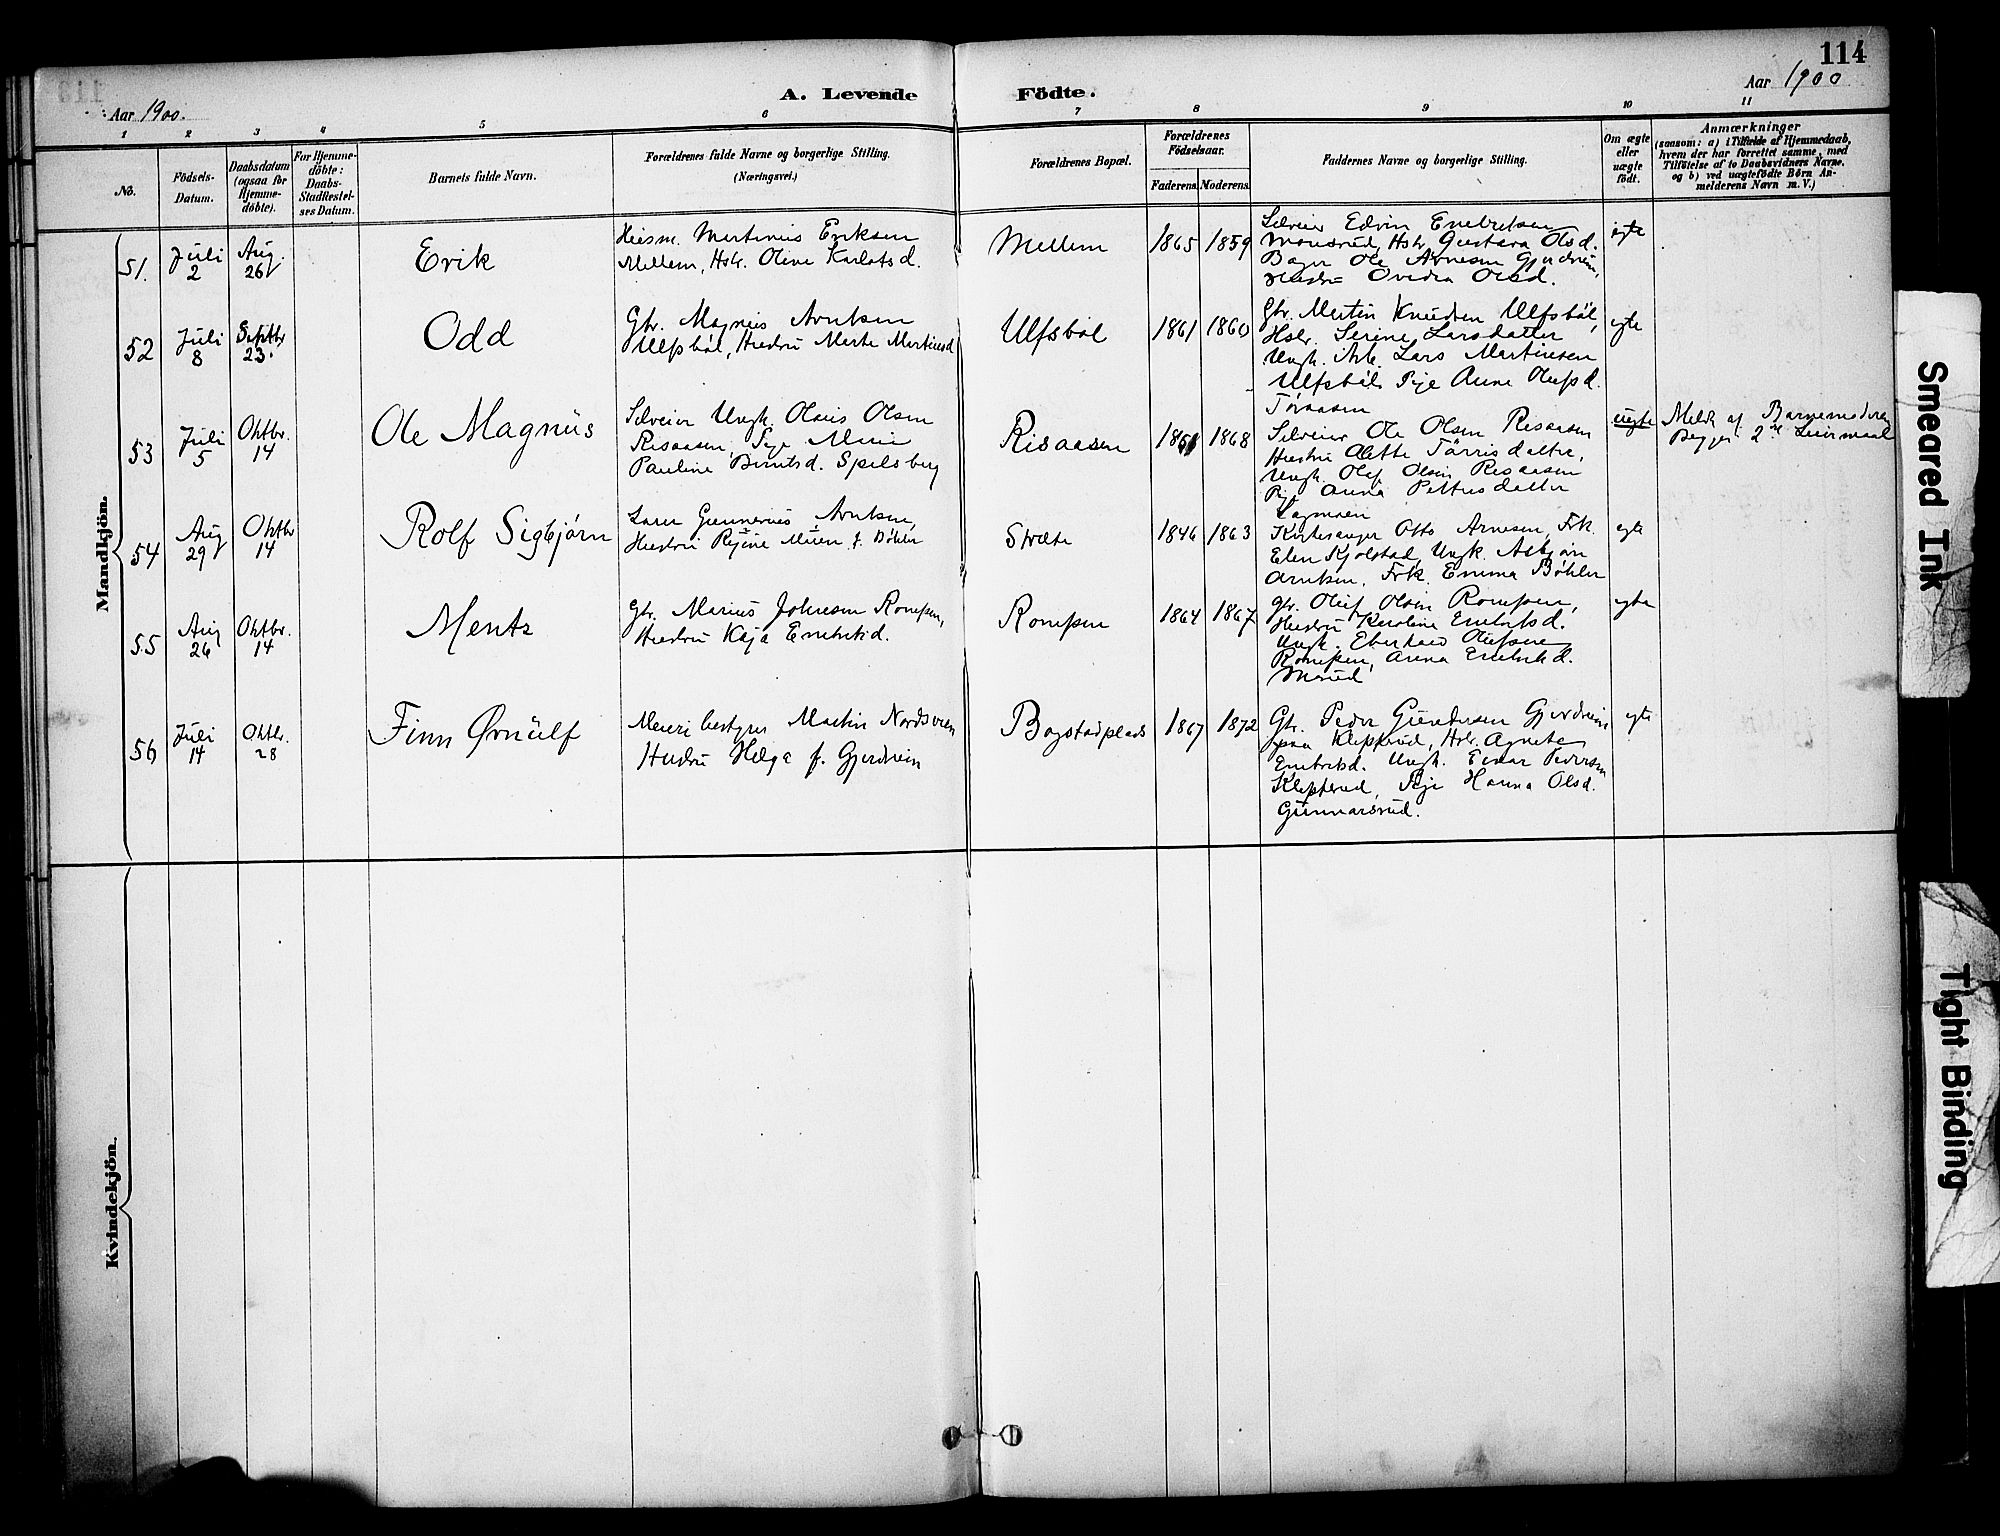 114
Aar 1900.
A. Levende Födte.
Aar 1900
1 2 3 4 5 6 7 8 9 10 11
No.
Födsels-
Datum.
Daabsdatum
(ogsaa for
Hjemme-
döbte).
For Hjemme-
döbte:
Daabs-
Stadfæstel-
ses Datum.
Barnets fulde Navn.
Forældrenes fulde Navne og borgerlige Stilling.
(Næringsvei.)
Forældrenes Bopæl.
Forældrenes
Födselsaar.
Faderens. Moderens.
Faddernes Navne og borgerlige Stilling.
Om ægte
eller
uægte
födt.
Anmærkninger
(saasom: a) i Tilfælde af Hjemmedaab,
hvem der har forrettet samme, med
Tilföielse af to Daabsvidners Navne,
og b) ved uægtefödte Börn An-
melderens Navn m. V.)
Mandkjön.
51.
Juli
2
Aug.
26
Erik
Husm. Martinius Eriksen
Mellem, Hstr. Oline Karlotsd.
Mellem
1865 1859
Selveier Edvin Enebretsen
Monsrud, Hstr. Gustava Olsd.
Bager Ole Arnesen Gjerdrum,
Hustru Ovidia Olsd.
ægte
52
Juli
8
Septbr
23.
Odd
Gbr. Magnus Arntsen
Ulfsböl, Hustru Marte Martinsd
Ulfsböl
1861 1860
Gbr. Martin Knudsen Ulfsböl,
Hstr. Serine Larsdatter
Ungk. Arb. Lars Martinsen
Ulfsböl, Pige Anne Olufsd.
Töraasen
egte
53
Juli
5
Oktbr.
14
Ole Magnus
Selveier Ungk. Olaus Olsen
Risaasen, Pige
Pauline Berntsd. Spilsberg
Risaasen
1868
Selveier Ole Olsen Risaasen
Hustru Olette Törrisdatter,
Ungk. Olaf Olsen Risaasen
Pige Anna Pettersdatter
Lagmoen
uegte
Meldt af Barnemoderen
Begges 2det Leiermaal
54
Aug
29
Oktbr
14
Rolf Sigbjørn
Lærer Gunnerius Arntsen,
Hustru Regine f. Bøhler
Stræte
1846 1863
Kirkesanger Otto Arnesen, Frk.
Elen Kjölstad, Ungk. Asbjørn
Arntsen, Frk. Emma Bøhler
egte
55
Aug
26
Oktbr.
14
Mentz
Gbr. Marius Johnsen Romsen,
Hustru Kaja Enebretsd.
Romsen
1864 1867
Gbr. Oluf Olsen Romsen,
Hustru Karoline
Ungk. Eberhard Olufsen
Romsen, Anna Enebretsd.
egte
56
Juli
14
Oktbr.
28
Finn Ørnulf
Meieribestyrer Martin Nordsveen
Hustru Helga f. Gjerdrum
Bogstadplads
1867 1872
Gbr. Peder Gundersen Gjerdrum
paa Klepperud, Hstr. Agnete
Enebretsd. Ungk. Einar Pedersen
Klepperud, Pige Hanna Olsd.
Gunnarsrud.
egte
Kvindekjön.
Smeared Ink
Tight Binding